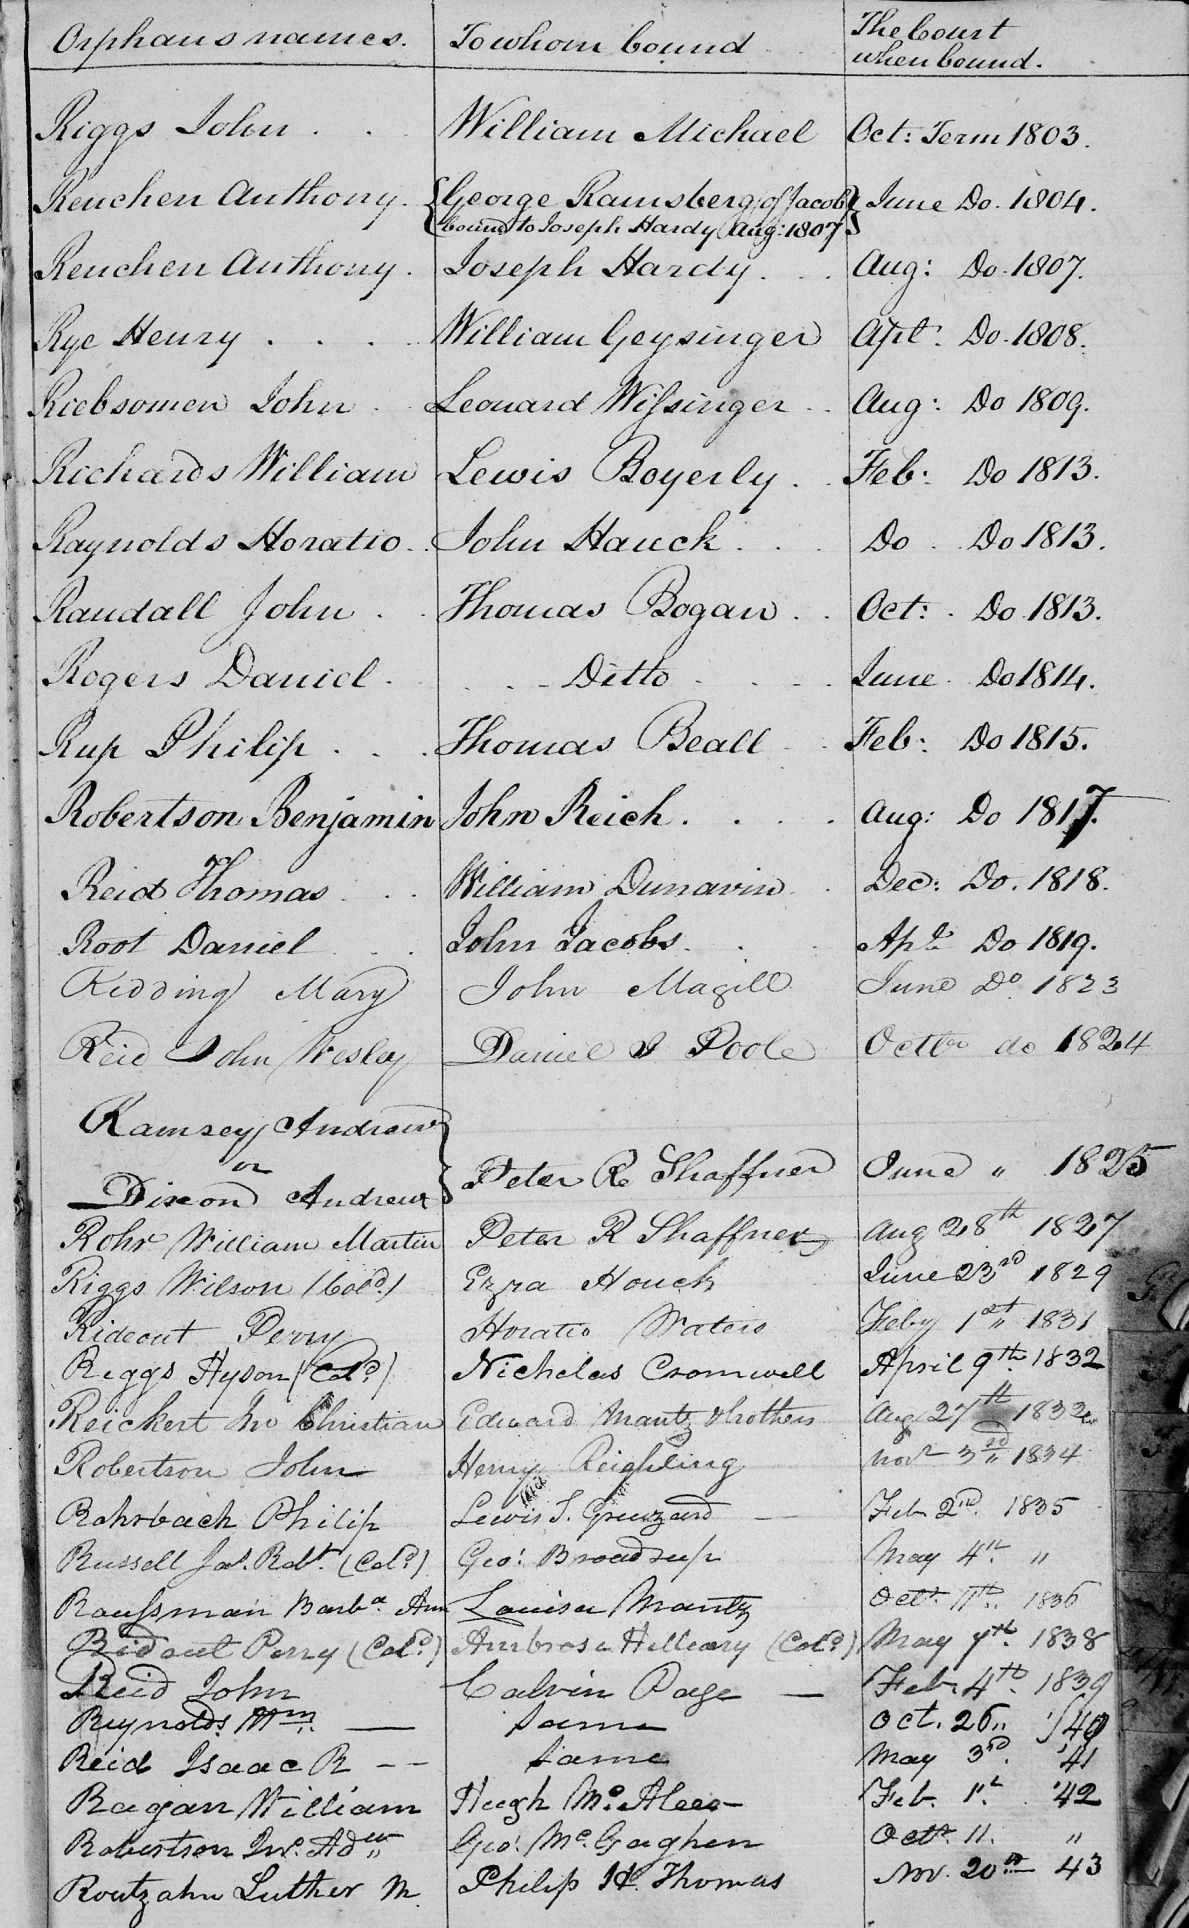 Orphans names. To whom bound The Court
when bound.
Riggs John . . William Michael Oct: Term 1803.
Reuchen Anthony. {George Ramsberg of Jacob} June Do. 1804.
bound to Joseph Hardy Aug: 1807
Reuchen Anthony. Joseph Hardy. . . Aug: Do. 1807.
Rye Henry . . . . William Geysinger Apl: Do. 1808.
Riebsomen John . . Leonard Wissinger . . Aug: Do 1809.
Richards William Lewis Boyerly . . Feb: Do 1813.
Raynolds Horatio . . John Hauck . . . Do . . Do 1813.
Randall John . . Thomas Bogan . . Oct: . Do. 1813.
Rogers Daniel . . . . Ditto . . . . June . Do 1814.
Rup Philip . . . . Thomas Beall . . Feb: Do 1815.
Robertson Benjamin John Reich . . . . Aug: Do 1817.
Reid Thomas . . . William Dunavin . . Dec: Do. 1818.
Root Daniel . . . John Jacobs . . . Apl Do 1819.
Ridding Mary John Magill June Do. 1823
Reid John Wesley Daniel S Poole Octbr do 1824
Ramsey Andrew }
or
Dixon Andrew } Peter R Shaffner June " 1825
Rohr William Martin Peter R Shaffner Aug 28th 1827
Riggs Wilson (Cold.) Ezra Houck June 23rd 1829
Rideout Perry Horatio Waters Feby 1st 1831
Riggs Hyson (Cold) Nicholas Cromwell April 9th 1832
Reickert Jno Christian Edward Mantz & brothers Aug 27th 1832
Robertson John Henry Reighling Novr 3rd 1834
Rohrbach Philip Lewis S. Grwzard — Feb 2nd. 1835
Russell Jas. Robt. (Cold) Geo: Broadrup May 4th. "
Raussman Barba. Ann Louisa Mantz Octr. 11th. 1836
Ridout Perry (Cold) Ambrose Hilleary (Cold) May 7th. 1838
Reid John Calvin Page — Feb. 4th. 1839
Reynolds Wm. — Same Oct. 26" '40
Reid Isaac R — — Same May 3rd. '41
Ragan William Hugh McAleer — Feb. 1st. '42
Robertson Jno. Adw" Geo: McGaghen Octr. 11. "
Routzahn Luther M. Philip H. Thomas Nov. 20th — 43